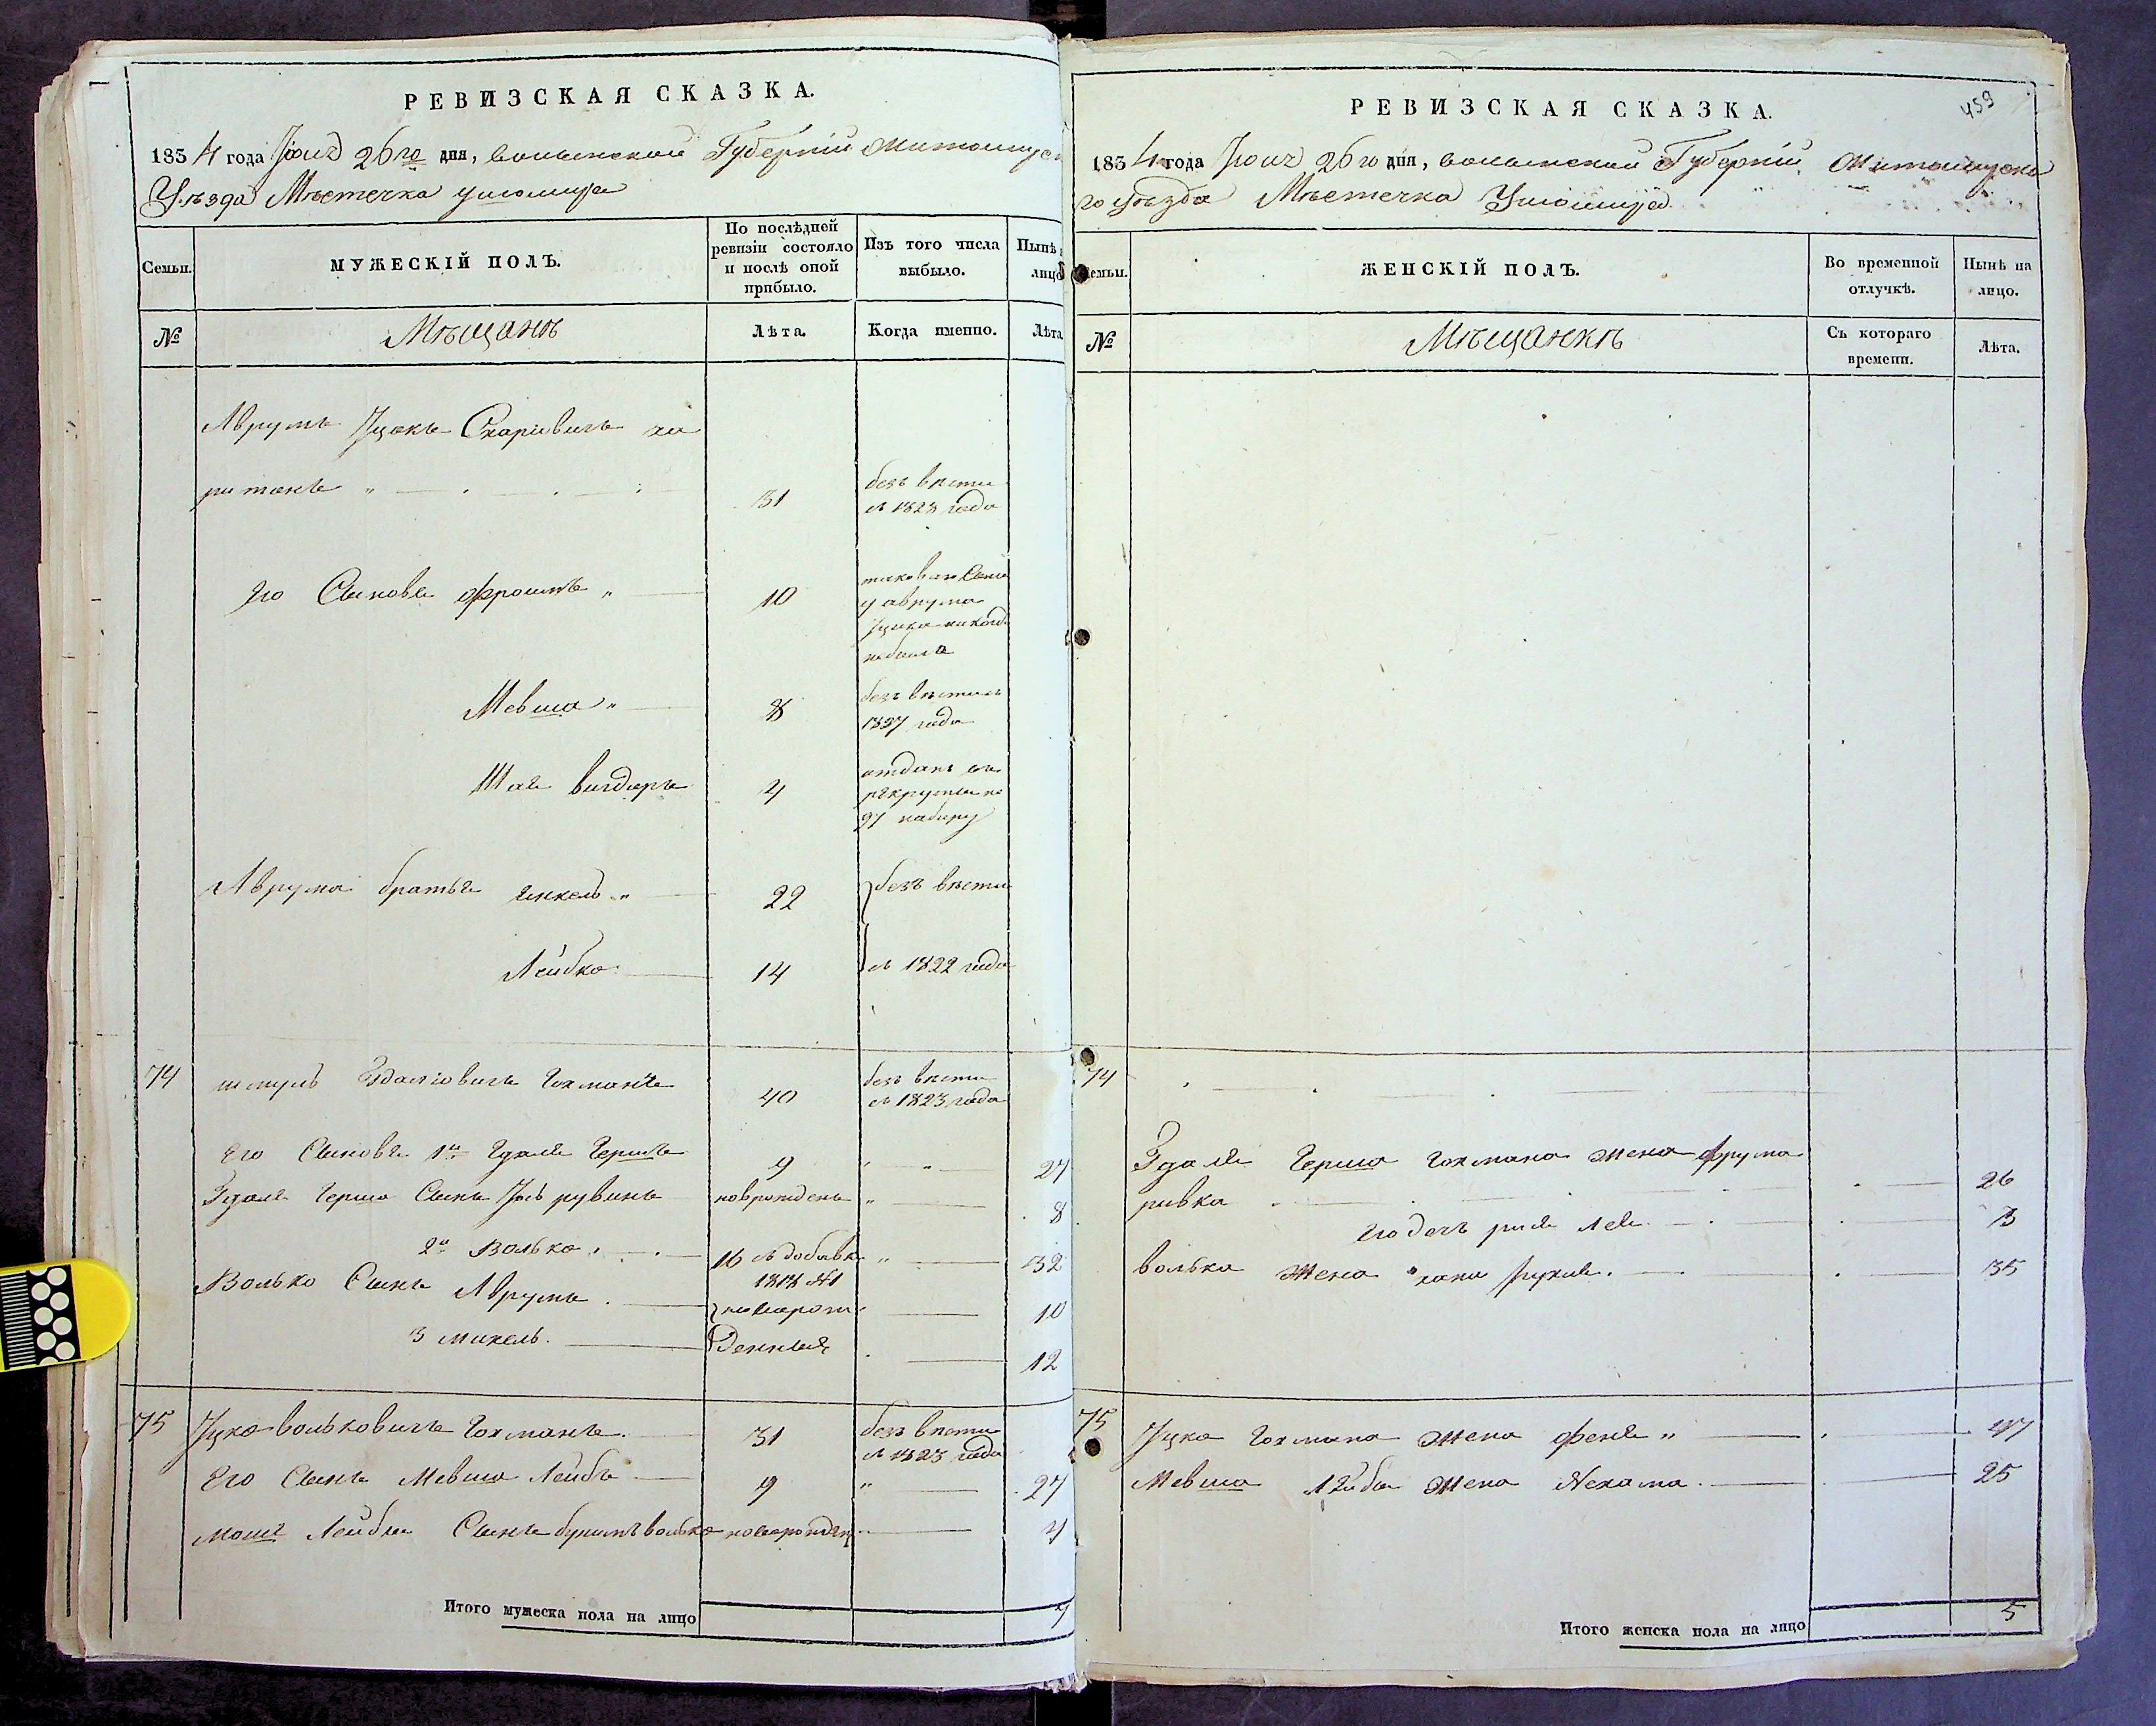 РЕВИЗСКАЯ СКАЗКА.
1834 года Июня 26го дня, волынской Губерніи Житомирск
Уѣзда Мѣстечка Ушомира
Семьи.
МУЖЕСКІЙ ПОЛЪ.
По послѣдней ревизіи состояло и послѣ оной прибыло.
Изъ того числа выбыло.
Нынѣ лицо
№
Мѣщанъ
Лѣта.
Когда именно.
Лѣта
Аврумъ Ицокъ
31
безъ вѣсти
съ 1828 года
Его Сыновья Фроимъ
10
у аврума
Ицка
небыло
Мевша
8
безъ вѣсти съ
1827 года
Шая
4
отданъ въ
рекруты по
97 набору
Аврума братья Янкель
22
безъ вѣсти
Лейбко
14
съ 1822 года
74 шмуль Гдаліовичъ Гохманъ
40
безъ вѣсти
съ 1823 года
Его Сыновья 1й Гдаля Гершъ
9
27
Гдаля Герша Сынъ рувинъ
новорожденъ
8
2й Волько
16
1818
32
Волько Сынъ Аврумъ
новорож
10
3 михель
денныя
12
75 Ицко вольковичъ Гохманъ
31
безъ вѣсти
съ 1823 года
Его Сынъ Мевша Лейбъ
9
27
Мошъ Лейбы Сынъ волько новорожден
Итого мужеска пола на лицо
7
459
РЕВИЗСКАЯ СКАЗКА.
1834 года Июня 26го дня, волынской Губерніи Житомирска
го уѣзда Мѣстечка Ушомира
Семьи.
ЖЕНСКІЙ ПОЛЪ.
Во временной отлучкѣ.
Нынѣ на лицо.
№
Мѣщанкъ
Съ котораго времени.
Лѣта.
74
Гдаля Герша Гохмана жена Фрума
ривка
26
Его дочь лея
3
волька жена хана рухля
35
75 Ицка Гохмана жена феня
47
Мевша Лейба жена Нехама
25
Итого женска пола на лицо
5